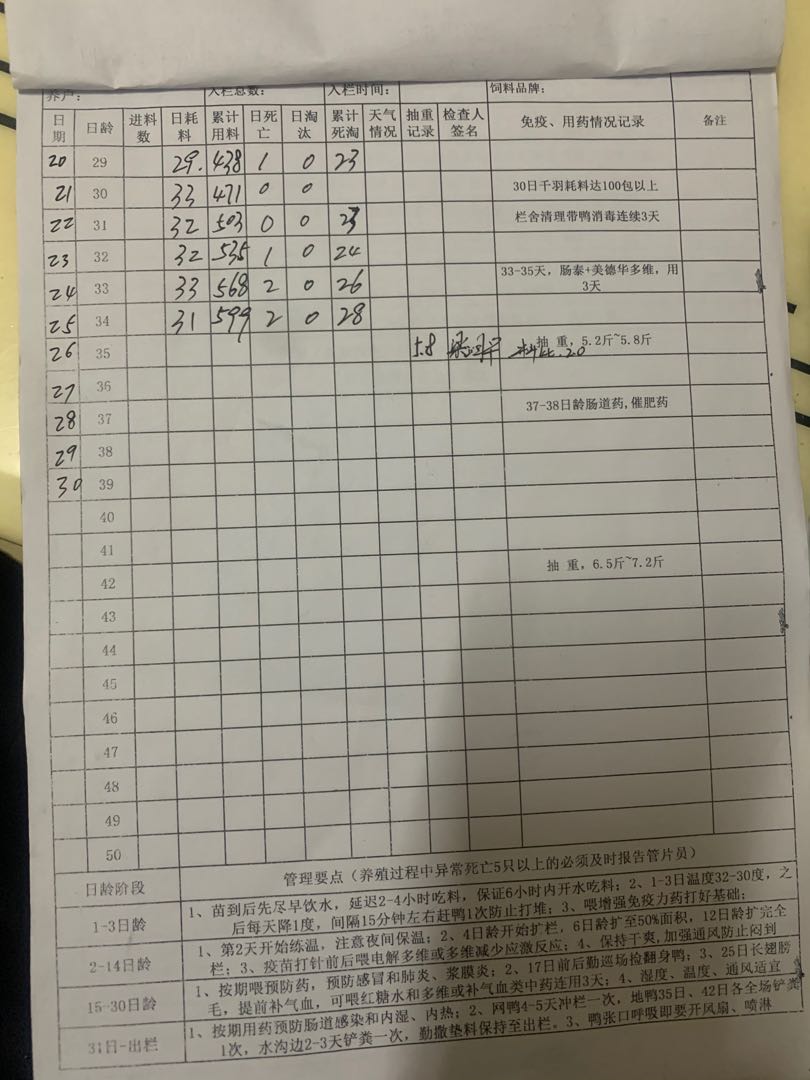 养户： 入栏总数： 入栏时间： 饲料品牌：
日期 日龄 进料数 日耗料 累计用料 日死亡 日淘汰 累计死淘 天气情况 抽重记录 检查人签名 免疫、用药情况记录 备注
20 29 29. 438 1 0 23
21 30 33 471 0 0 30日千羽耗料达100包以上
22 31 32 503 0 0 23 栏舍清理带鸭消毒连续3天
23 32 32 535 1 0 24
24 33 33 568 2 0 26 33-35天，肠泰+美德华多维，用3天
25 34 31 599 2 0 28
26 35 5.8 抽 重，5.2斤~5.8斤
27 36
28 37 37-38日龄肠道药,催肥药
29 38
30 39
40
41
42 抽 重，6.5斤~7.2斤
43
44
45
46
47
48
49
50
日龄阶段 管理要点（养殖过程中异常死亡5只以上的必须及时报告管片员）
1-3日龄 1、苗到后先尽早饮水，延迟2-4小时吃料，保证6小时内开水吃料；2、1-3日温度32-30度，之
后每天降1度，间隔15分钟左右赶鸭1次防止打堆；3、喂增强免疫力药打好基础；
2-14日龄 1、第2天开始练温，注意夜间保温；2、4日龄开始扩栏，6日龄扩至50%面积，12日龄扩完全
栏；3、疫苗打针前后喂电解多维或多维减少应激反应；4、保持干爽,加强通风防止闷到
15-30日龄 1、按期喂预防药，预防感冒和肺炎、浆膜炎；2、17日前后勤巡场捡翻身鸭；3、25日长翅膀
毛，提前补气血，可喂红糖水和多维或补气血类中药连用3天；4、湿度、温度、通风适宜
31日-出栏 1、按期用药预防肠道感染和内湿、内热；2、网鸭4-5天冲栏一次，地鸭35日、42日各全场铲粪
1次，水沟边2-3天铲粪一次，勤撒垫料保持至出栏。3、鸭张口呼吸即要开风扇、喷淋